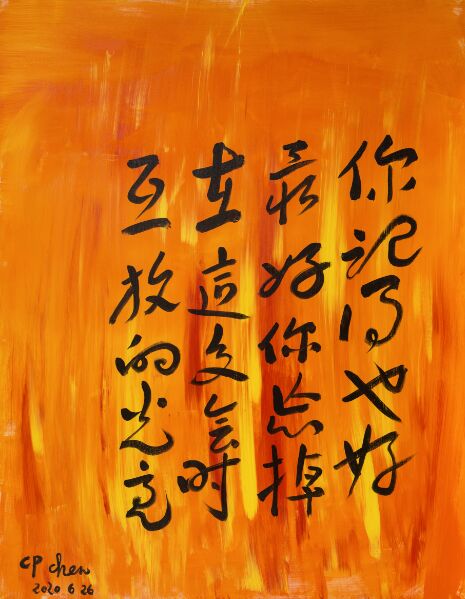 你记得也好
最好你忘掉
在这交会时
互放的光亮
CP Chen
2020 6 26